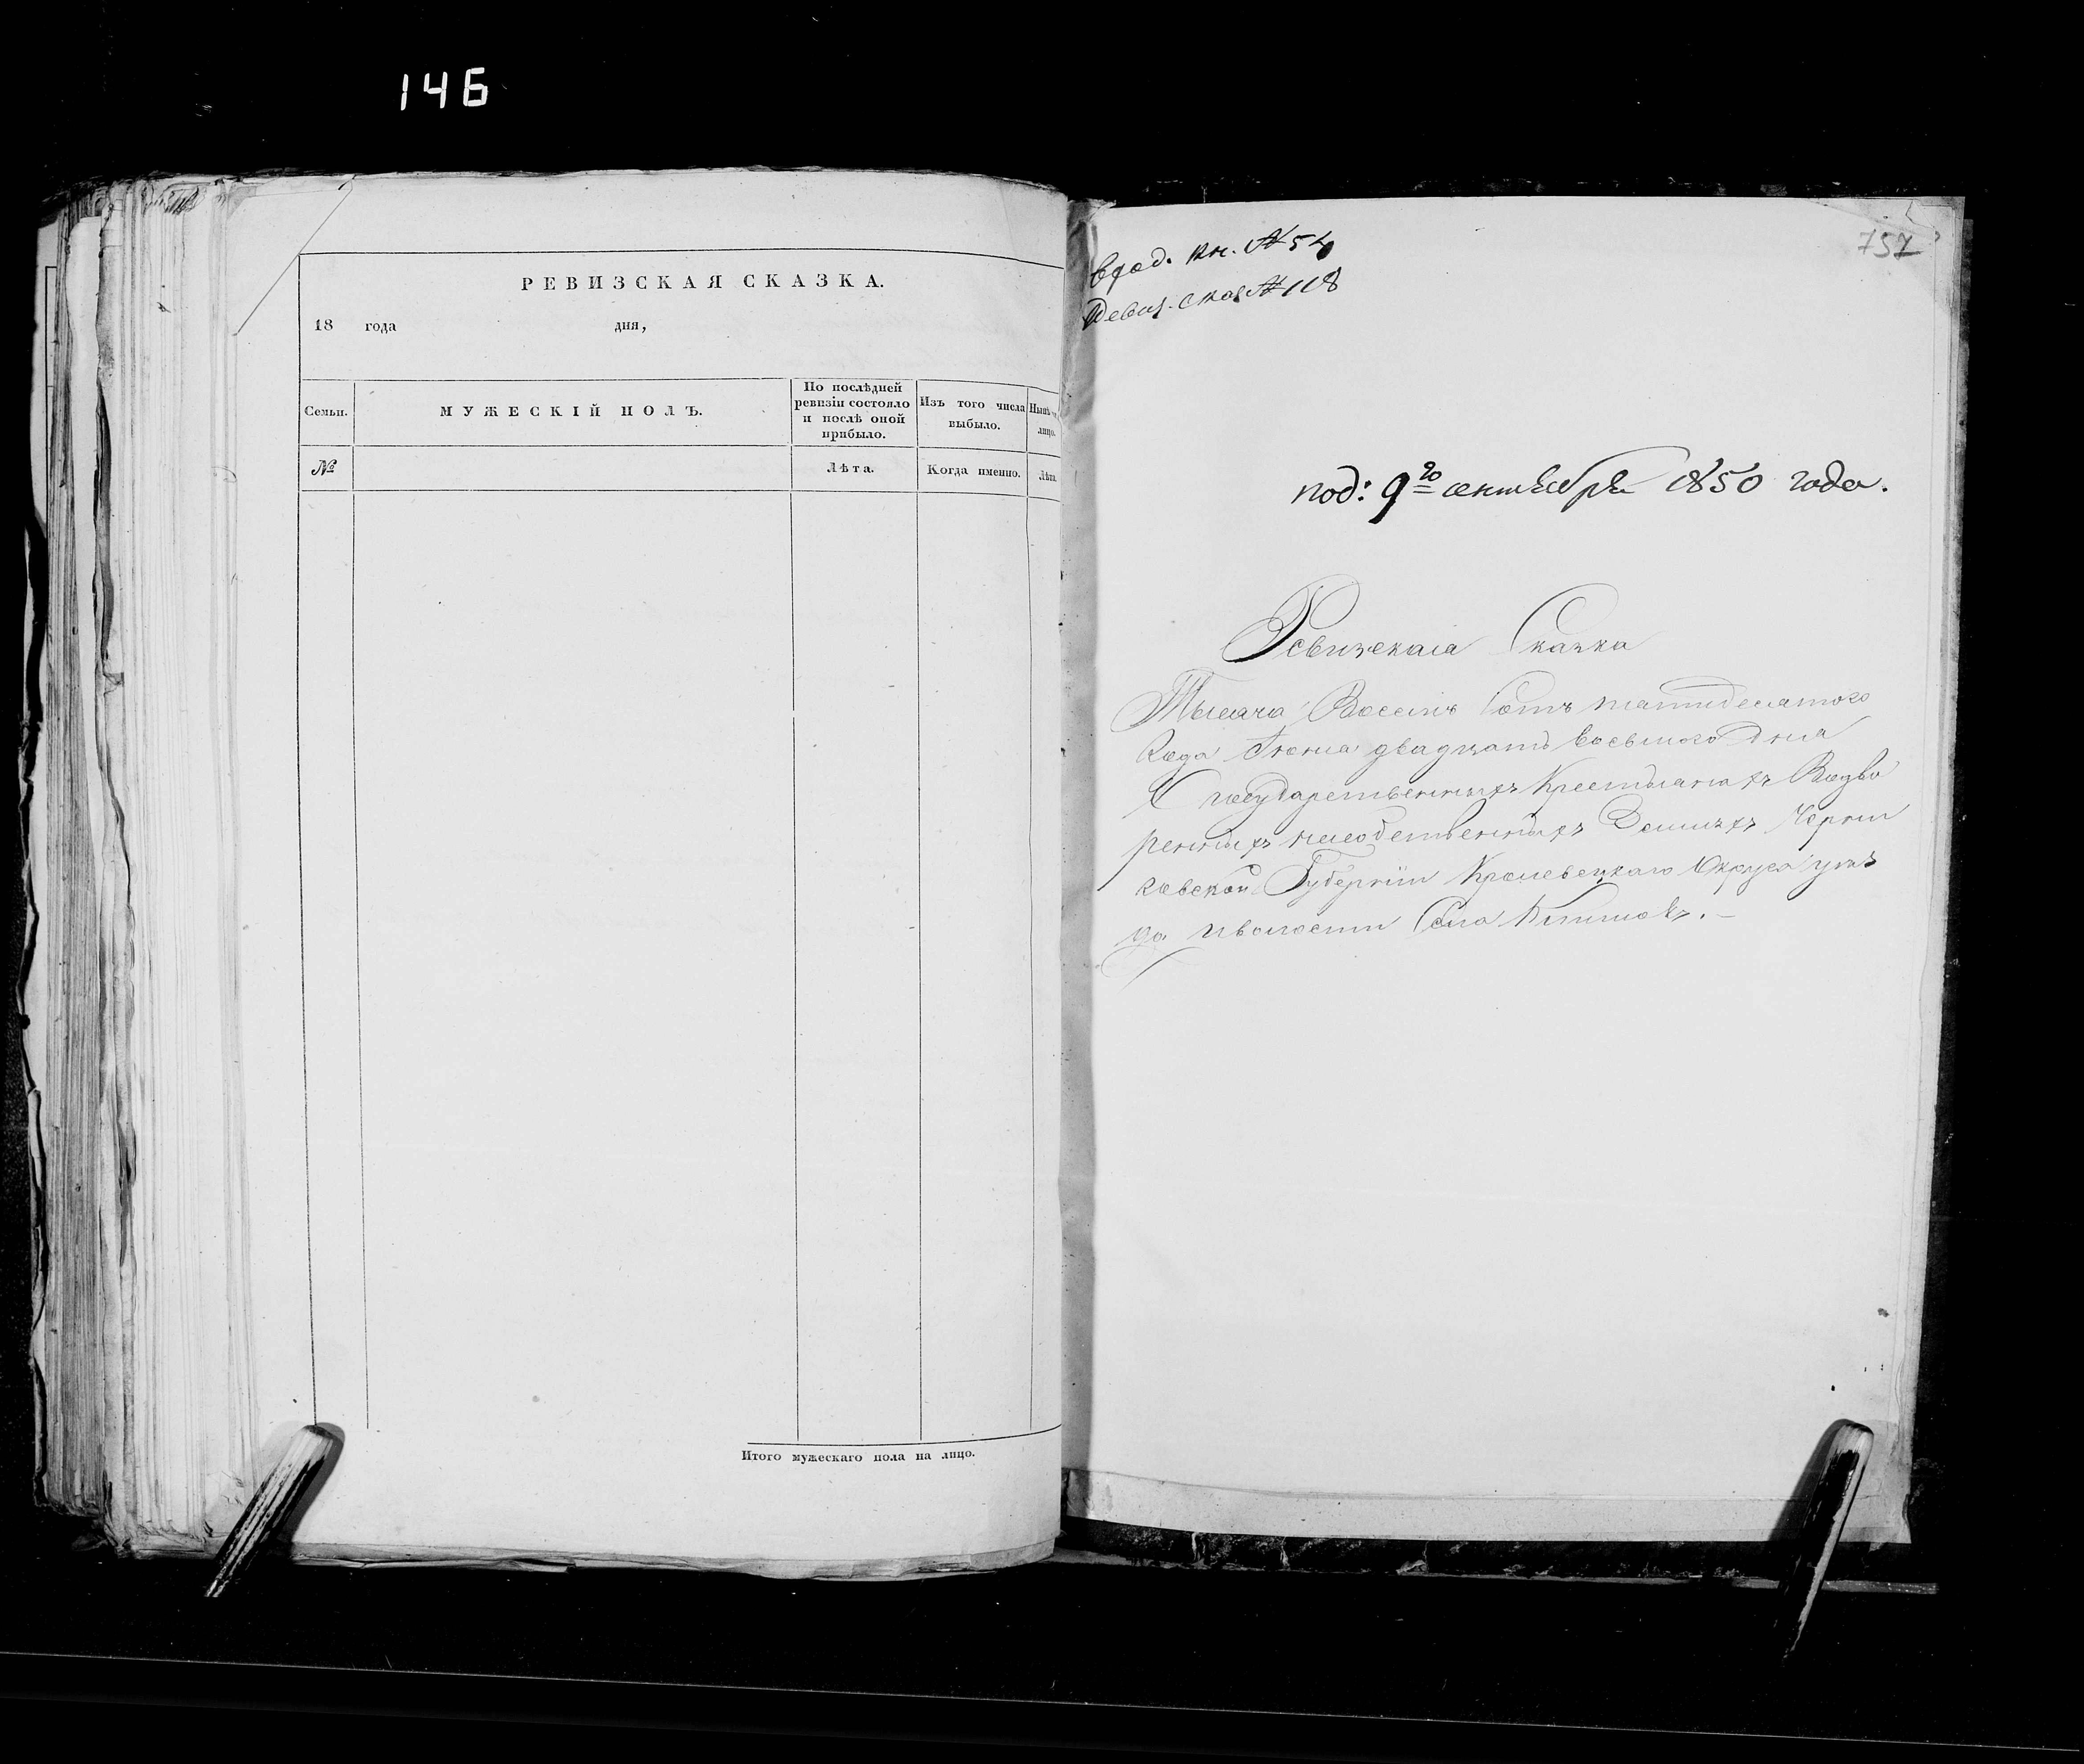 146
РЕВИЗСКАЯ СКАЗКА.
18 года дня,
Семьи.
МУЖЕСКІЙ ПОЛЪ.
По послѣдней ревизіи состояло и послѣ оной прибыло.
Изъ того числа выбыло.
Нынѣ
лицо.
№
Лѣта.
Когда именно.
Лѣта.
Итого мужескаго пола на лицо.
757
вход. кн. № 54
Ревиз. сказ № 118
под: 9го сентября 1850 года.
Ревизская Сказка
Тысяча Восемь Сотъ пятидесятого
Года Июня двадцать восьмого Дня
О государственныхъ Крестьянахъ Водво
ренныхъ на собственныхъ Землях Черни
говской Губерніи Кролевецкаго Округа уѣз
да и волости Села